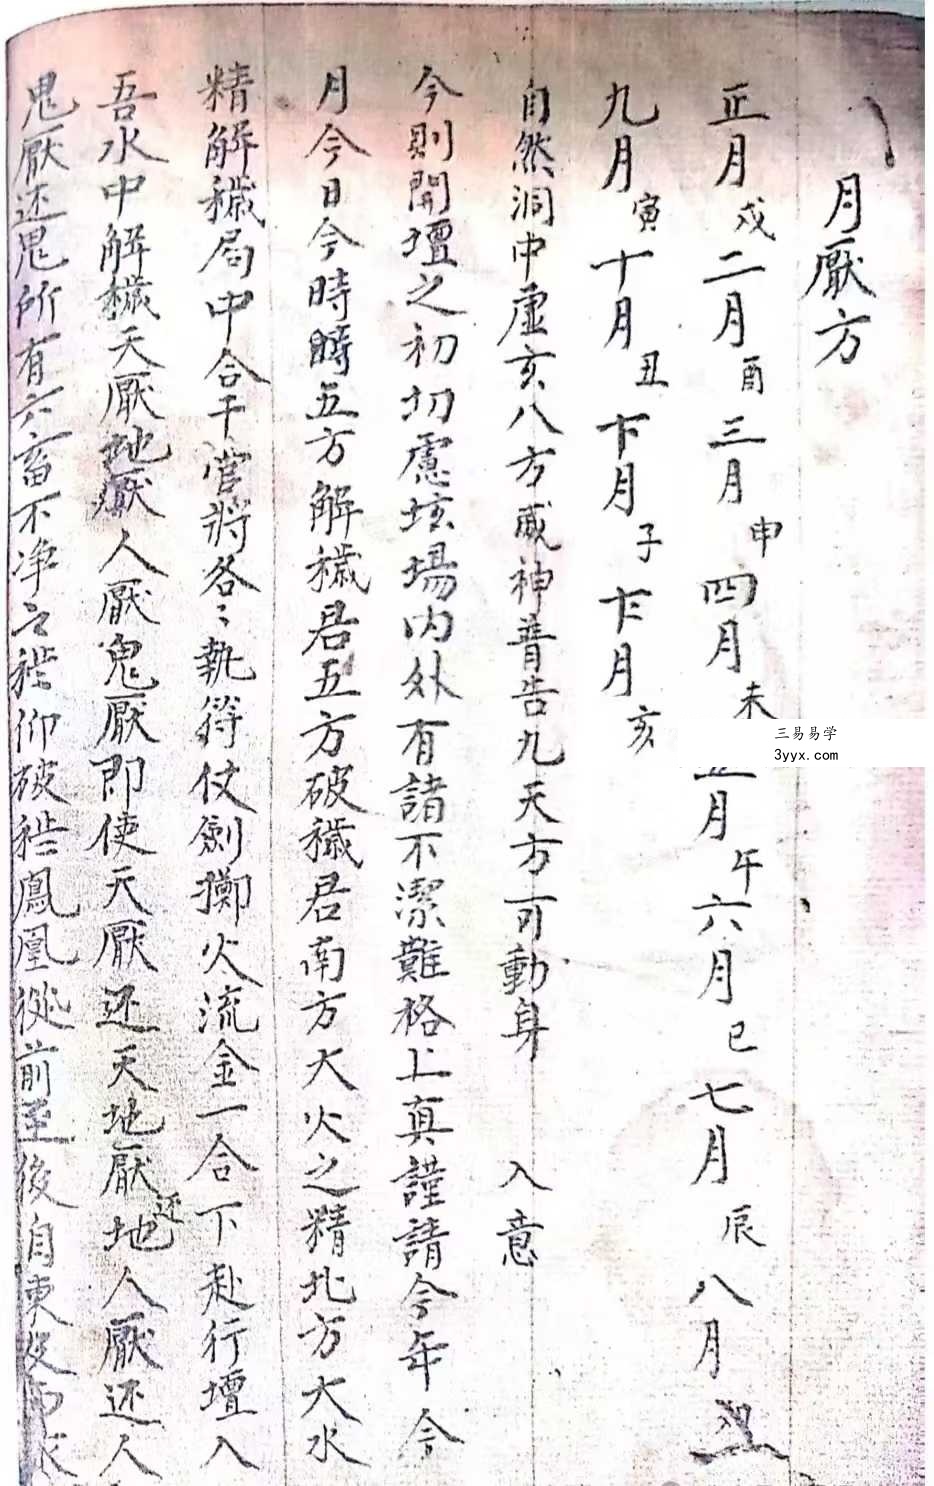 月厭方
正月戌二月酉三月申四月未五月午六月巳七月辰八月
九月寅十月丑十一月子十二月亥
自然洞中虛玄八方威神普告九天方可動身 入意
今則開壇之初切慮垓場内外有諸不潔難格上真謹請今年今
月今日今時時五方解穢君五方破穢君南方大火之精北方大水
精解穢局中合干官將各〻執符仗劍擲火流金一合下赴行壇入
吾水中解穢天厭地厭人厭鬼厭即使天厭还天地厭还地人厭还人
鬼厭还鬼所有六畜不净之𥘵仰破𥘵鳳凰從前至後自東及西
三易易学
3yyx.com